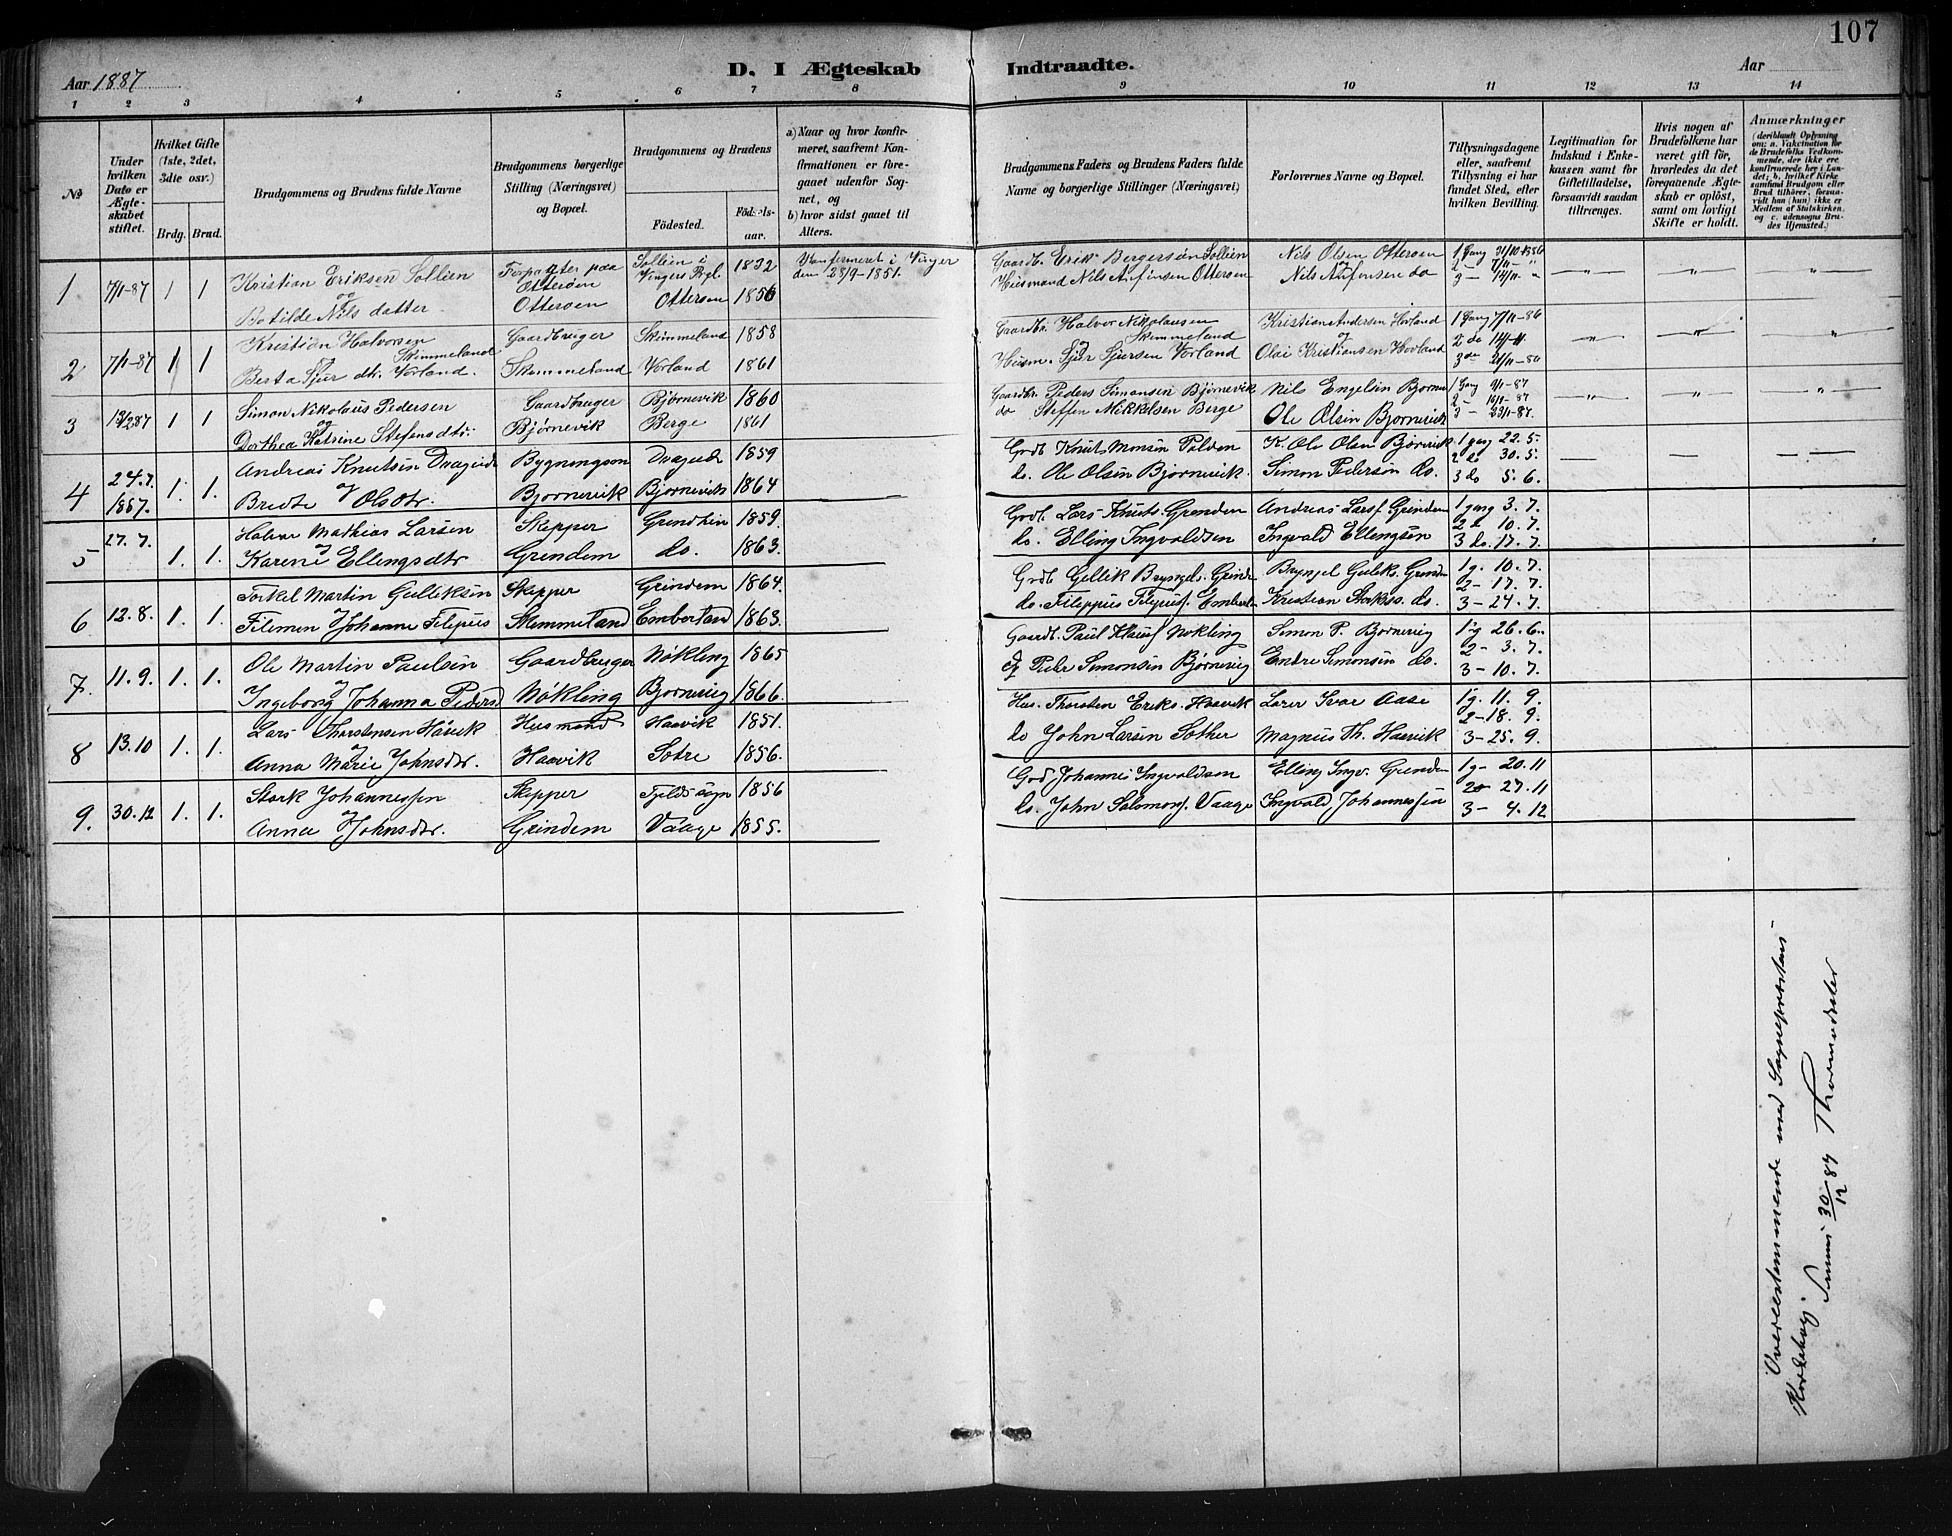 107
Aar 1887
D. I Ægteskab Indtraadte.
Aar
1 2 3 4 5 6 7 8 9 10 11 12 13 14
№
Under hvilken Dato er Ægteskabet stiftet.
Hvilket Gifte (1ste, 2det, 3die osv.)
Brdg. Brud.
Brudgommens og Brudens fulde Navne
Brudgommens borgerlige Stilling (Næringsvei) og Bopæl.
Brudgommens og Brudens
Fødested.
Fødselsaar.
a) Naar og hvor konfirmeret, saafremt Konfirmationen er foregaaet udenfor Sognet, og
b) hvor sidst gaaet til Alters.
Brudgommens Faders og Brudens Faders fulde Navne og borgerlige Stillinger (Næringsvei)
Forlovernes Navne og Bopæl.
Tillysningsdagene eller, saafremt Tillysning ei har fundet Sted, efter hvilken Bevilling.
Legitimation for Indskud i Enkekassen samt for Giftetilladelse, forsaavidt saadan tiltrænges.
Hvis nogen af Brudefolkene har været gift før, hvorledes da det foregaaende Ægteskab er opløst, samt om lovligt Skifte er holdt.
Anmærkninger (deriblandt Oplysning om: a. Vakcination for de Brudefolks Vedkommende, der ikke ere konfirmerede her i Landet; b, hvilket Kirkesamfund Brudgom eller Brud tilhører, forsaavidt han (hun) ikke er Medlem af Statskirken, og c. udensogns Brudes Hjemsted.)
1 7/1-87 1 1 Kristian Eriksen Sollien Forpagter paa Otterøen Sollien i Vingers Pgl. 1832 Konfirmeret i Vinger den 28/9-1851. Gaardbr. Erik Bergersøn Sollien Nils Olsen Otterøen 1 Gang 31/10-1886
og
Botilde Nils datter Otterøen Otterøen 1856 Huusmand Nils Anfinsen Otterøen Nils Anfinsen do 2 — 7/11 - " 3 — 14/11 "
2 7/1-87 1 1 Kristian Halvorsen Skimmeland Gaardbruger Skimmeland 1858 Gaardbr. Halvor Nikolausen Skimmeland Kristian Andersen Hovland 1 Gang 7/11-86
og
Berta Sjur dtr. Vorland. Skimmeland Vorland 1861 Huusm. Sjur Sjursen Vorland Olai Kristiansen Hovland 2 do 14/11 3de 21/11-86
3 13/2 87 1 1 Simon Nikolaus Pedersen Gaardbruger Bjørnevik 1860 Gaardbr. Peders Simonsen Bjørnevik Nils Engelsen 1 Gang 9/1-87
og
Dorthea Katrine Stefensdtr. Bjørnevik Berge 1861 do Steffen Mikkelsen Berge Ole Olsen Bjørnevik 2 — 16/1-87 3 — 23/1-87.
4 24.7. 1887. 1. 1. Andreas Knutsen Drageide Bygningsm Drageide 1859 Grdb. Knut Monsen K. Ole Olsen Bjørnevik 1 gang 22.5.
Olsdtr. Bjørnevik Bjørnevik 1864 do. Ole Olsen Bjørnevik. Simon Pedersen do. 2 do 30.5. 3 do 5.6.
5 27.7. 1. 1. Mathias Larsen Skipper 1859. Grdb. Lars Knuts. Grenden Andreas Lars. Grindem 1 gang 3.7.
Karene Ellingsdtr Grendem do. 1863. do. Elling Ingvaldsen Ingvald Ellengsen 2 d 10.7. 3 do. 17.7.
6 12.8. 1. 1. Torkel Martin Gulliksen Skipper Grindem 1864. Grdb Gellik Bryngels. Bryngel Guliks. 1 g. 10.7.
Johanne Filipus Skimmeland Emberland 1863. do. Filippus Kristian do. 2 — 17.7. 3 — 24.7.
7. 11.9. 1. 1. Ole Martin Paulsen Gaardbruger Nøkling 1865 Gaardb. Paul Nøkling Simon P. Bjørnevig 1 g 26.6.
Ingeborg Johanna Peders. Nøkling Bjørnevig 1866. Peder Simonsen Bjørnevig Endre Simonsen do. 2 — 3.7. 3 — 10.7.
8 13.10 1. 1. Lars Thorstensen Haavik Husmand Haavik 1851. Hus. Thorsten Eriks. Haavik Lærer Ivar Aase 1 g. 11.9.
Anna Marie Johnsdtr. Haavik Sotre 1856. do John Larsen Sother Magnus Th. Haavik 2 — 18.9. 3 — 25.9.
9. 30.12 1. 1. Stork Johannessen Skipper Fjelds sogn 1856 Johannes Ingvaldson Elling Ingv. Grendem 1 g — 20.11
Anna Johnsdtr. Grindem Vaage 1855. do. John Salomons. Vaage Ingvald Johannessen 2 — 27.11 3 — 4.12
Overeestemmende med Sognepræstens
Kirkebog.
30/12 87 Thormodsæter